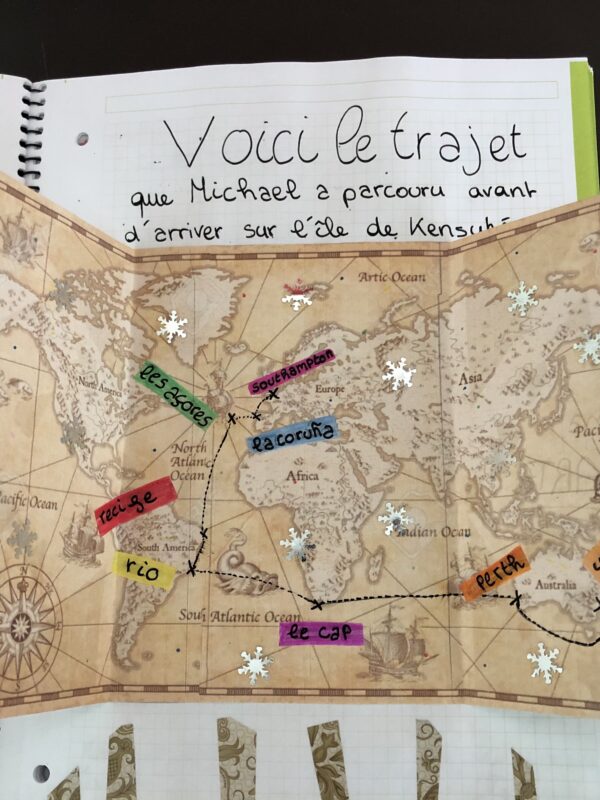 Voici le trajet
que Michael a parcouru avant
d'arriver sur l'île de
Artic Ocean
southampton
North America
Europe
Asia
les açores
la coruña
North
Atlantic
Ocean
Africa
recife
Pacific Ocean
Indian Ocean
South America
rio
perth
Australia
South Atlantic Ocean
le cap